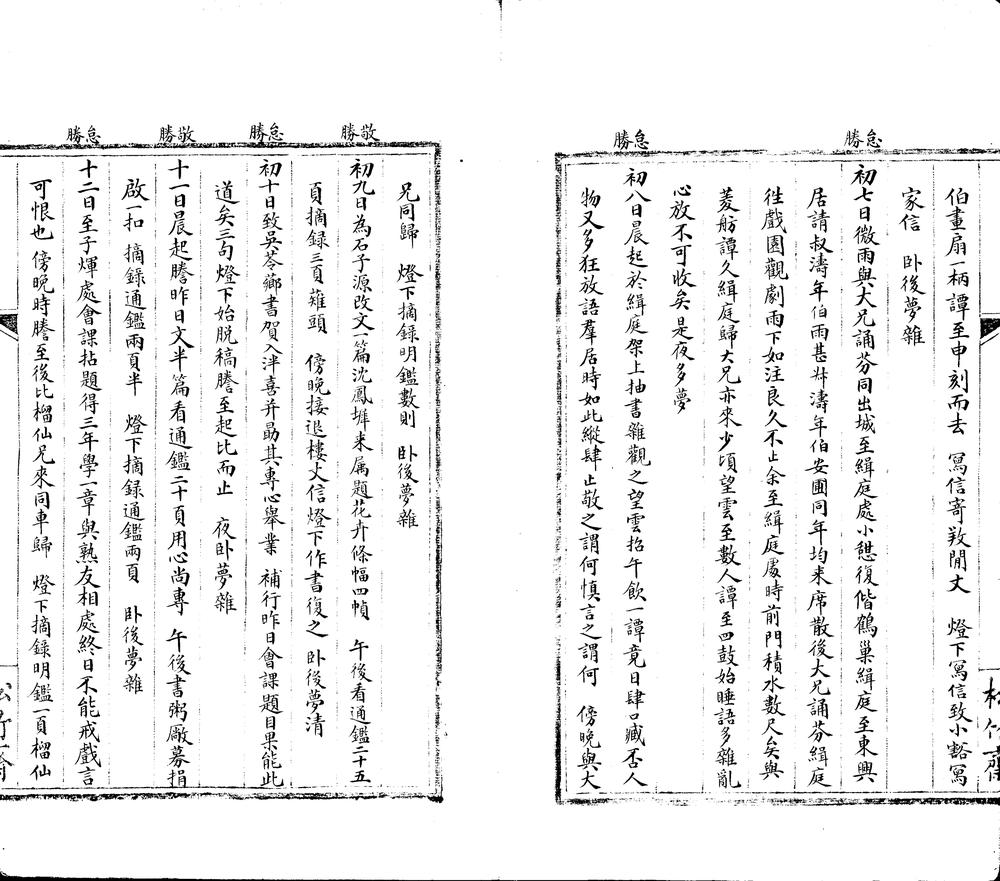 伯畫扇一柄譚至申刻而去　寫信寄敉閒丈　燈下寫信致小豁寫
家信　卧後夢雜
怠勝
初七日微雨與大兄誦芬同出城至緝庭處小憩復偕鶴巢緝庭至東興
居請叔濤年伯雨甚並濤年伯安圃同年均来席散後大兄誦芬緝庭
徃戲園觀劇雨下如注良久不止余至緝庭處時前門積水數尺矣與
菱舫譚久緝庭歸大兄亦來少頃望雲至數人譚至四鼓始睡語多雜亂
心放不可收矣是夜多夢
怠勝
初八日晨起於緝庭架上抽書雜觀之望雲招午飲一譚竟日肆口臧否人
物又多狂放語羣居時如此縱肆止敬之謂何慎言之謂何　傍晚與大
兄同歸　燈下摘録明鑑數則　卧後夢雜
敬勝
初九日為石子源改文一篇沈鳳墀来属題花卉條幅四幀　午後看通鑑二十五
頁摘録三頁薙頭　傍晚接退樓丈信燈下作書復之　卧後夢清
怠勝
初十日致吳苓薌書賀入泮喜并勗其專心舉業　補行昨日會課題目果能此
道矣三句燈下始脱稿謄至起比而止　夜卧夢雜
敬勝
十一日晨起謄昨日文半篇看通鑑二十頁用心尚專　午後書粥厰募捐
啟一扣　摘録通鑑兩頁半　燈下摘録通鑑兩頁　卧後夢雜
怠勝
十二日至子煇處會課拈題得三年學一章與熟友相處終日不能戒戲言
可恨也　傍晚時謄至後比榴仙兄來同車歸　燈下摘録明鑑一頁榴仙
松竹齋
松竹齋